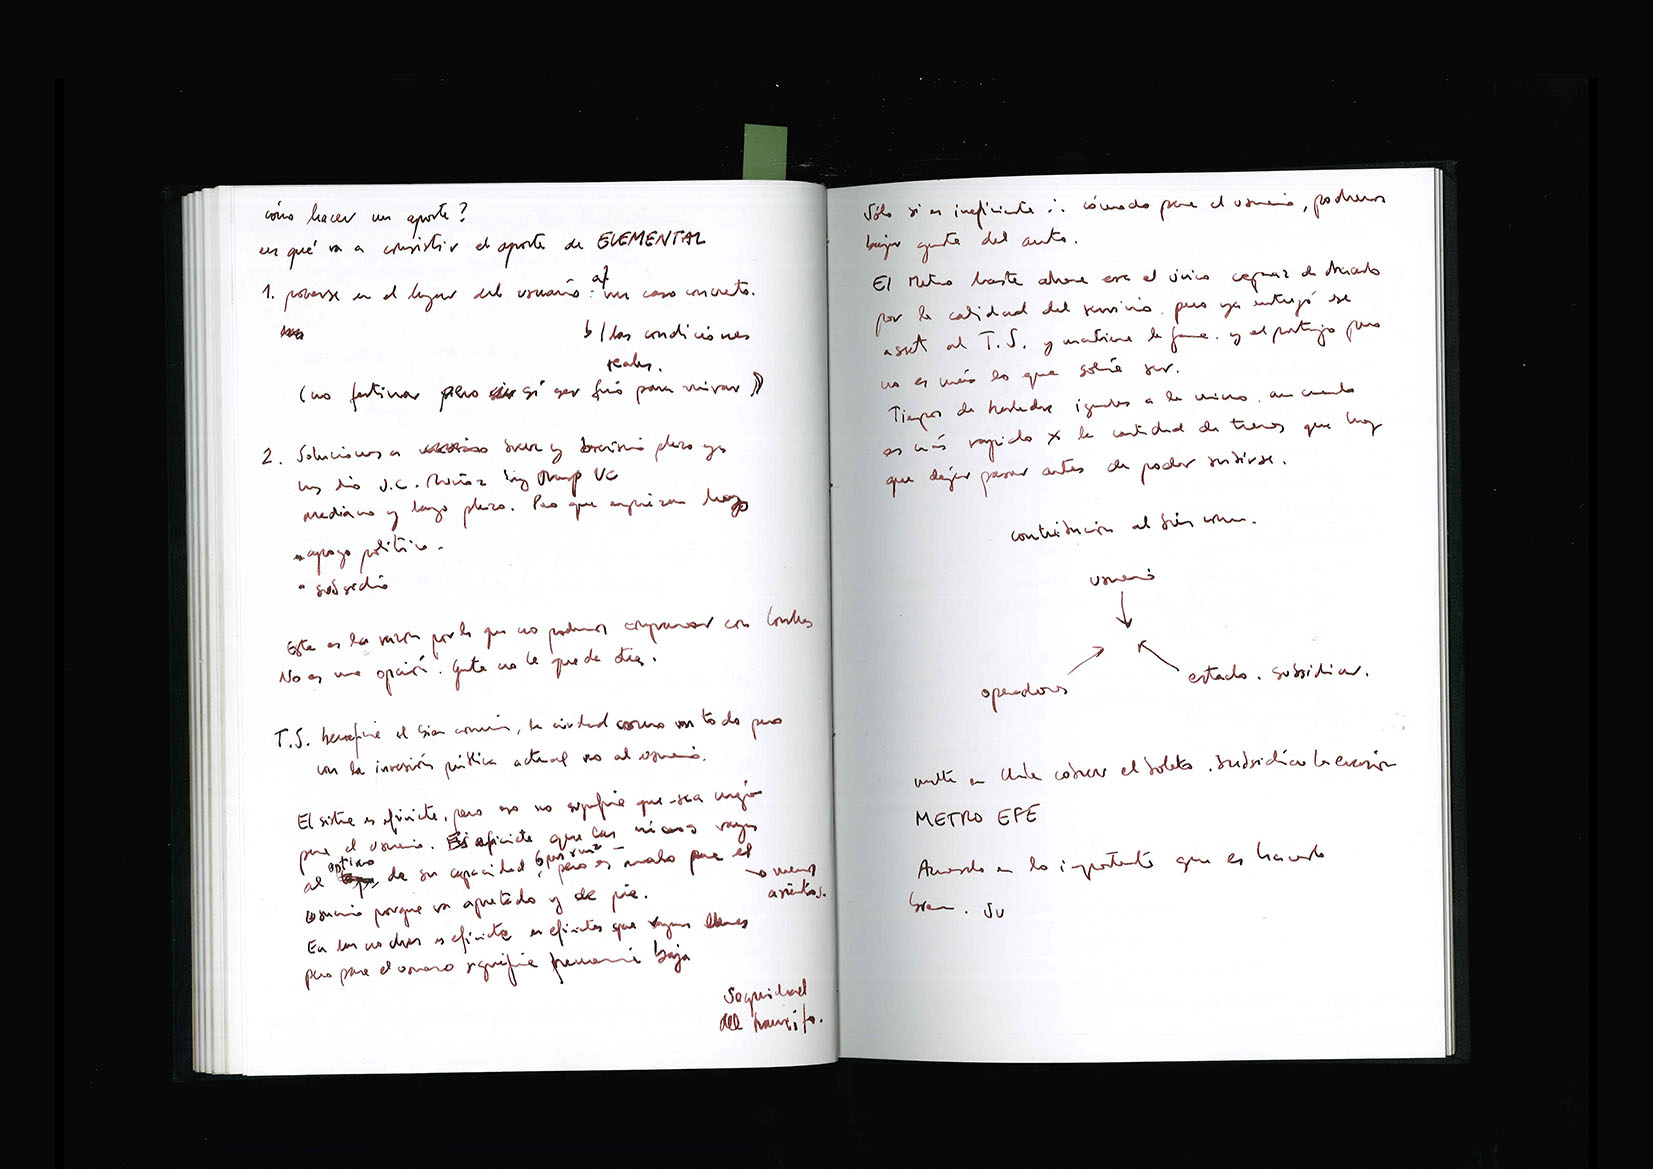 cómo hacer un aporte?
en qué va a consistir el aporte de ELEMENTAL
1. ponerse en el lugar del usuario: a/ un caso concreto.
b/ las condiciones
reales.
(no fatinar pero sí ser frío para mirar)
2. Soluciones a breve y plazo ya
nos dio J.C. Muñoz Ing Transp UC
mediano y largo plazo. Pero que requieran
apoyo político.
subsidio
Esta es la razón por la que no podemos compararnos con Londres
No es una opción. Gente no le queda otra.
T.S. beneficia el bien común, la ciudad como un todo pero
con la inversión pública actual no al usuario.
El sistema es eficiente, pero eso no significa que sea mejor
para el usuario. Es eficiente que las micros vayan
al óptimo de su capacidad, pero es malo para el
usuario porque va apretado y de pie.
→ menos
asientos.
En las noches es eficiente que vayan llenas
pero para el usuario significa frecuencia baja
Seguridad
del transito.
Sólo si es ineficiente ∴ cómodo para el usuario, podremos
bajar gente del auto.
El Metro hasta ahora era el único capaz de hacerlo
por la calidad del servicio, pero ya entregó ese
asset al T.S. y mantiene la fama y el prestigio pero
no es más lo que solía ser.
Tiempos de igual a la micro, aun cuando
es más rapido x la cantidad de trenes que hay
que dejar pasar antes de poder subirse.
contribución al bien común.
usuario
operadores
estado. subsidiar.
en Chile cobrar el boleto. subsidiar la evasión
METRO EFE
Acuerdo en lo importante que es hacerlo
bien. Su